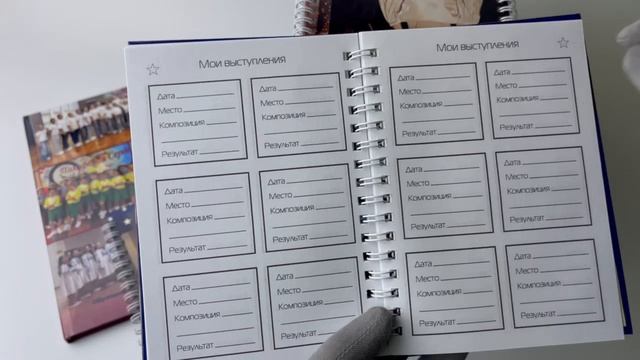 Мои выступления
Дата
Место
Композиция
Результат
Дата
Место
Композиция
Результат
Дата
Место
Композиция
Результат
Дата
Место
Композиция
Результат
Дата
Место
Композиция
Результат
Дата
Место
Композиция
Результат
Мои выступления
Дата
Место
Композиция
Результат
Дата
Место
Композиция
Результат
Дата
Место
Композиция
Результат
Дата
Место
Композиция
Результат
Дата
Место
Композиция
Результат
Дата
Место
Композиция
Результат